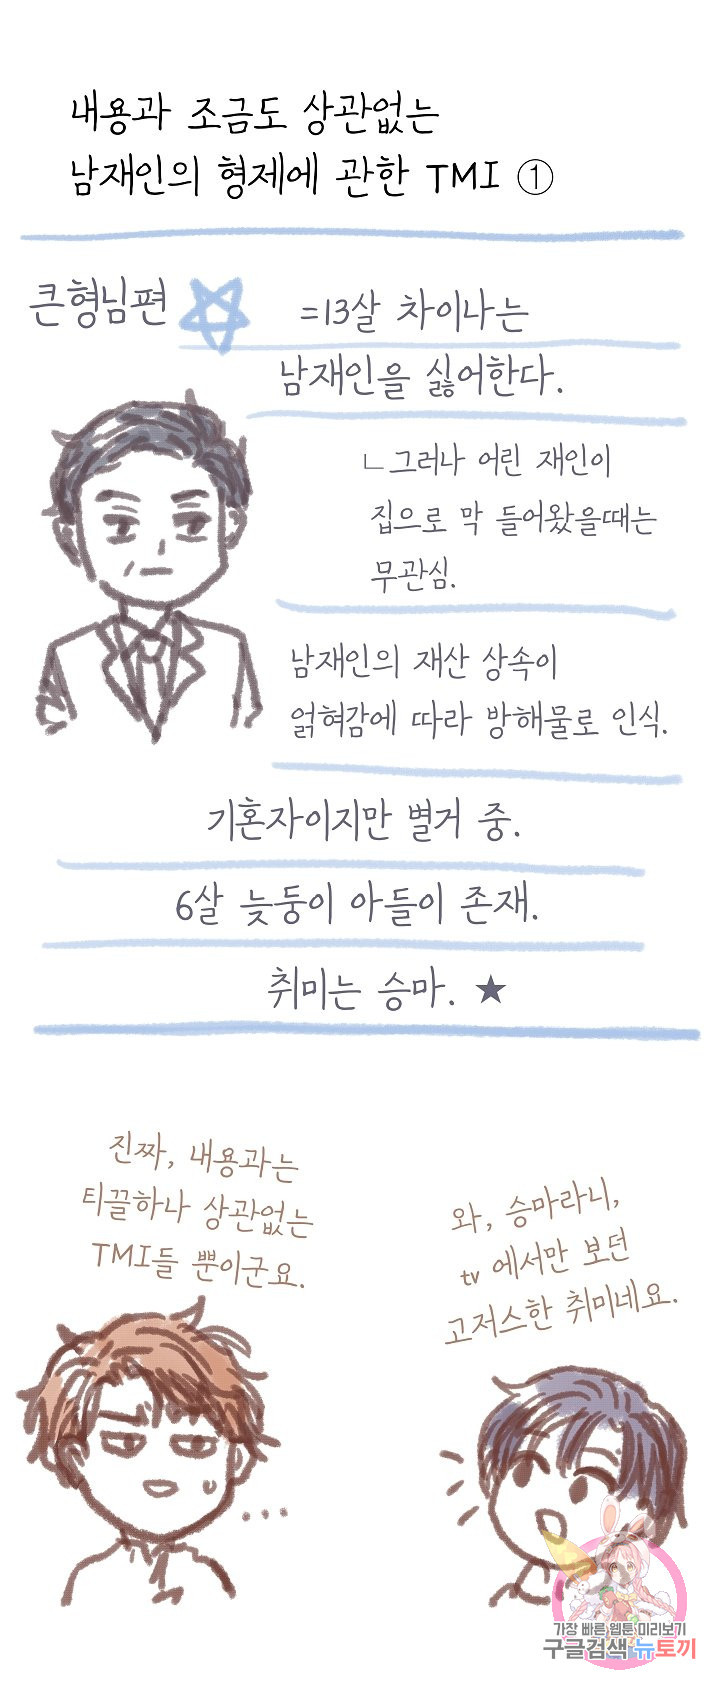 내용과 조금도 상관없는
남재인의 형제에 관한 TMI ①
큰형님편
=13살 차이나는
남재인을 싫어한다.
ㄴ그러나 어린 재인이
집으로 막 들어왔을때는
무관심.
남재인의 재산 상속이
얽혀감에 따라 방해물로 인식.
기혼자이지만 별거 중.
6살 늦둥이 아들이 존재.
취미는 승마. ★
진짜, 내용과는
티끌하나 상관없는
TMI들 뿐이군요.
와, 승마라니,
tv 에서만 보던
고저스한 취미네요.
...
가장 빠른 웹툰 미리보기
구글검색 뉴토끼